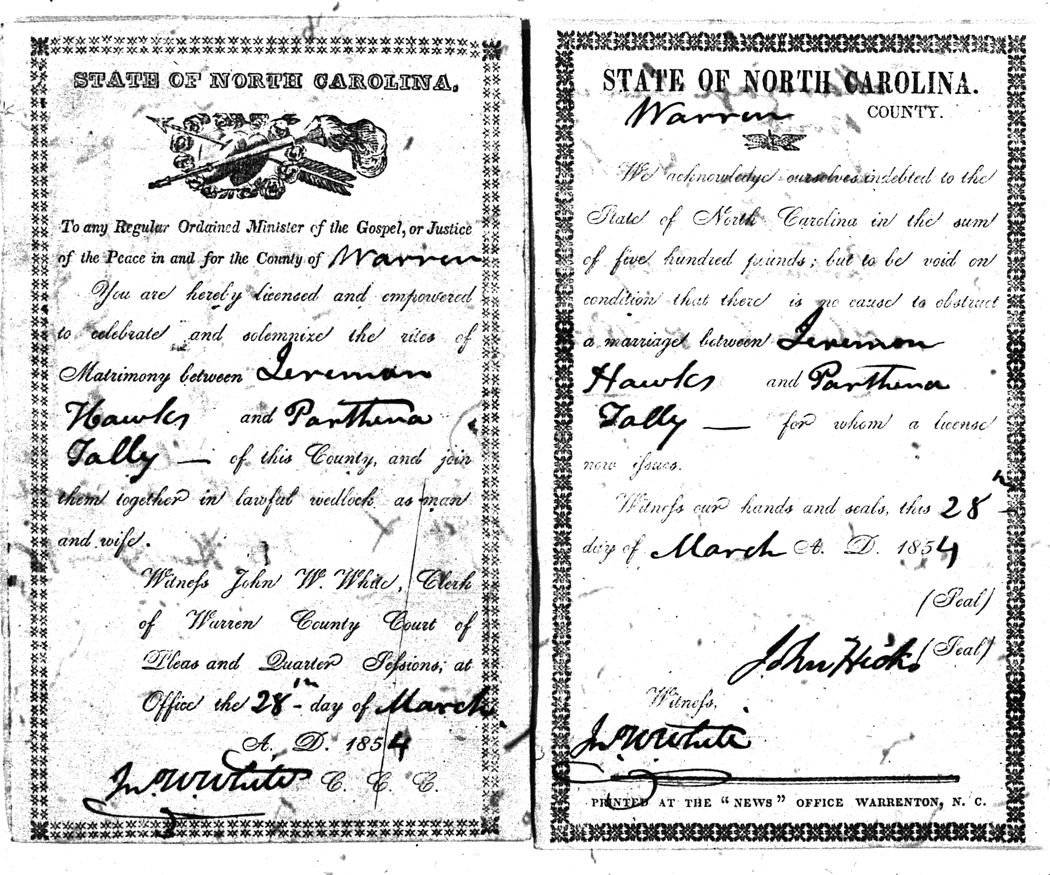 STATE OF NORTH CAROLINA.
To any Regular Ordained Minister of the Gospel, or Justice
of the Peace in and for the County of Warren
You are hereby licensed and empowered
to celebrate and solemnize the rites of
Matrimony between Jereman
Hawks and Parthena
Tally — of this County, and join
them together in lawful wedlock as man
and wife.
Witness John W. White, Clerk
of Warren County Court of
Pleas and Quarter Sessions, at
Office the 28th day of March
A. D. 1854
Jn. W. White C. C. C.
STATE OF NORTH CAROLINA.
Warren COUNTY.
We acknowledge ourselves indebted to the
State of North Carolina in the sum
of five hundred pounds; but to be void on
condition that there is no cause to obstruct
a marriage between Jereman
Hawks and Parthena
Tally — for whom a license
now issues.
Witness our hands and seals, this 28th
day of March A. D. 1854
(Seal)
John Hicks (Seal)
Witness,
Jn. W. White
PRINTED AT THE "NEWS" OFFICE WARRENTON, N. C.